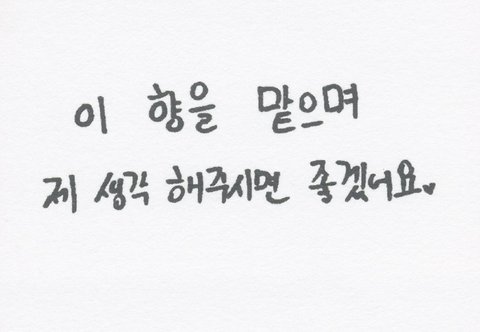 이 향을 맡으며
제 생각 해주시면 좋겠어요♥